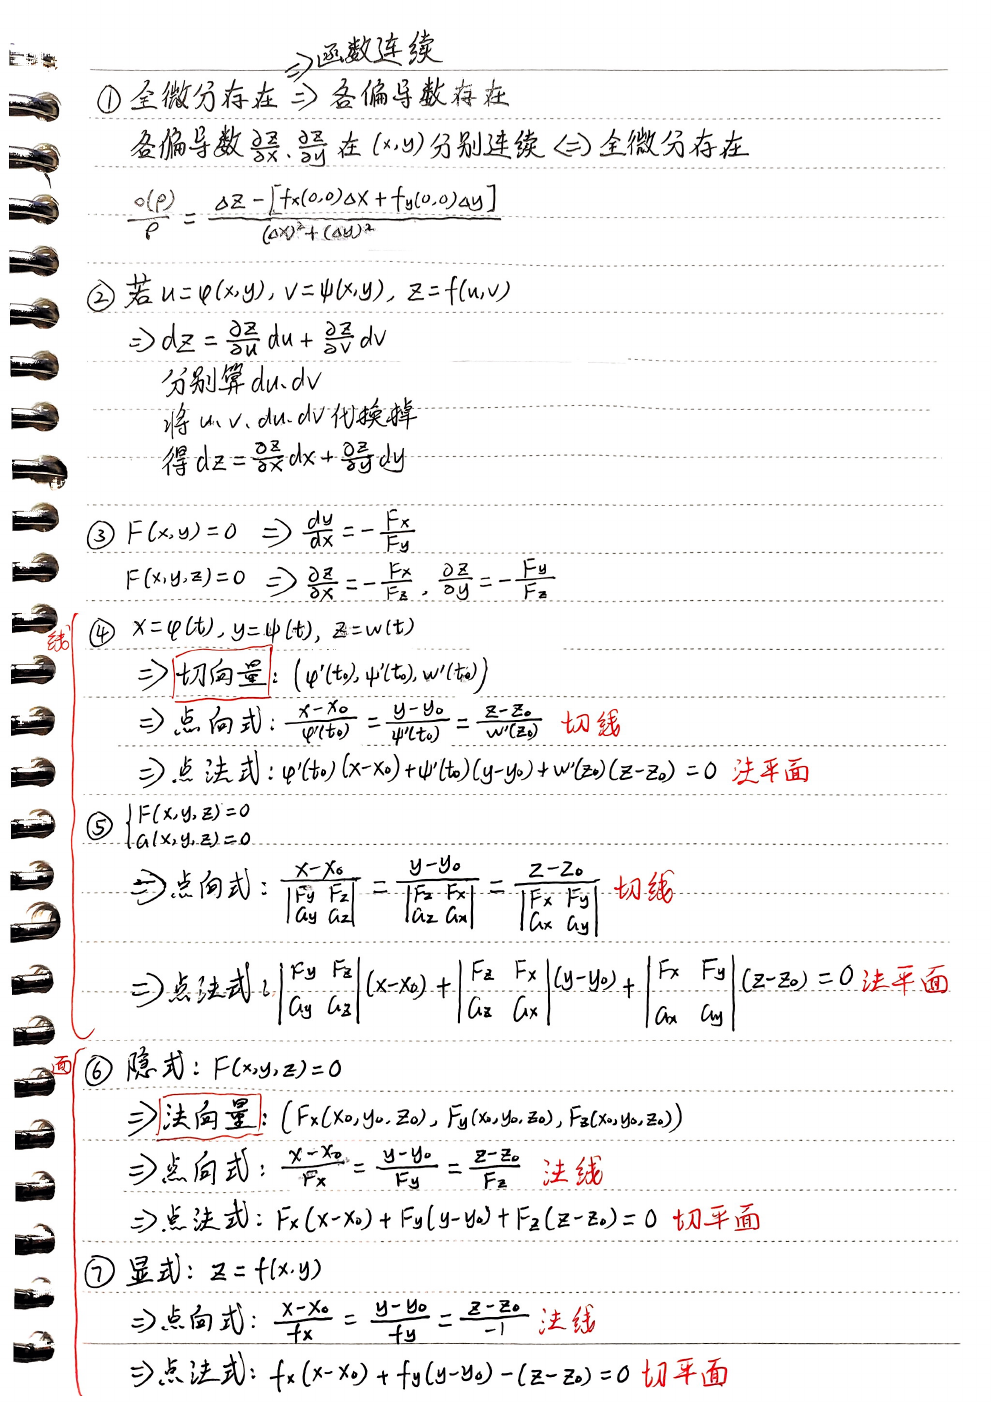 ⇒函数连续
① 全微分存在 ⇒ 各偏导数存在
各偏导数 ∂z/∂x、∂z/∂y 在 (x,y) 分别连续 ⇔ 全微分存在
o(ρ)/ρ = (Δz-[fx(0,0)Δx+fy(0,0)Δy])/((Δx)²+(Δy)²)
② 若 u=φ(x,y), v=ψ(x,y), z=f(u,v)
⇒ dz = ∂z/∂u du + ∂z/∂v dv
分别算 du、dv
将 u、v、du、dv 代换掉
得 dz = ∂z/∂x dx + ∂z/∂y dy
③ F(x,y)=0 ⇒ dy/dx = -Fx/Fy
F(x,y,z)=0 ⇒ ∂z/∂x = -Fx/Fz , ∂z/∂y = -Fy/Fz
线
④ x=φ(t), y=ψ(t), z=w(t)
⇒ 切向量: (φ'(t₀), ψ'(t₀), w'(t₀))
⇒ 点向式: (x-x₀)/φ'(t₀) = (y-y₀)/ψ'(t₀) = (z-z₀)/w'(z₀) 切线
⇒ 点法式: φ'(t₀)(x-x₀)+ψ'(t₀)(y-y₀)+w'(z₀)(z-z₀)=0 法平面
⑤ { F(x,y,z)=0
G(x,y,z)=0
⇒ 点向式: (x-x₀)/|Fy Fz; Gy Gz| = (y-y₀)/|Fz Fx; Gz Gx| = (z-z₀)/|Fx Fy; Gx Gy| 切线
⇒ 点法式: |Fy Fz; Gy Gz|(x-x₀) + |Fz Fx; Gz Gx|(y-y₀) + |Fx Fy; Gx Gy|(z-z₀) = 0 法平面
面
⑥ 隐式: F(x,y,z)=0
⇒ 法向量: (Fx(x₀,y₀,z₀), Fy(x₀,y₀,z₀), Fz(x₀,y₀,z₀))
⇒ 点向式: (x-x₀)/Fx = (y-y₀)/Fy = (z-z₀)/Fz 法线
⇒ 点法式: Fx(x-x₀)+Fy(y-y₀)+Fz(z-z₀)=0 切平面
⑦ 显式: z=f(x,y)
⇒ 点向式: (x-x₀)/fx = (y-y₀)/fy = (z-z₀)/-1 法线
⇒ 点法式: fx(x-x₀)+fy(y-y₀)-(z-z₀)=0 切平面